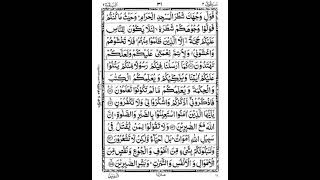 فَوَلِّ وَجْهَكَ شَطْرَ الْمَسْجِدِ الْحَرَامِ وَحَيْثُ مَا كُنْتُمْ
فَوَلُّوْا وُجُوْهَكُمْ شَطْرَهٗ لِئَلَّا يَكُوْنَ لِلنَّاسِ
عَلَيْكُمْ حُجَّةٌ اِلَّا الَّذِيْنَ ظَلَمُوْا مِنْهُمْ فَلَا تَخْشَوْهُمْ
وَاخْشَوْنِيْ وَلِاُتِمَّ نِعْمَتِيْ عَلَيْكُمْ وَلَعَلَّكُمْ
تَهْتَدُوْنَ كَمَا اَرْسَلْنَا فِيْكُمْ رَسُوْلًا مِّنْكُمْ يَتْلُوْا
عَلَيْكُمْ اٰيٰتِنَا وَيُزَكِّيْكُمْ وَيُعَلِّمُكُمُ الْكِتٰبَ
وَالْحِكْمَةَ وَيُعَلِّمُكُمْ مَّا لَمْ تَكُوْنُوْا تَعْلَمُوْنَ
فَاذْكُرُوْنِيْ اَذْكُرْكُمْ وَاشْكُرُوْا لِيْ وَلَا تَكْفُرُوْنِ
يٰاَيُّهَا الَّذِيْنَ اٰمَنُوا اسْتَعِيْنُوْا بِالصَّبْرِ وَالصَّلٰوةِ اِنَّ
اللّٰهَ مَعَ الصّٰبِرِيْنَ وَلَا تَقُوْلُوْا لِمَنْ يُّقْتَلُ فِيْ
سَبِيْلِ اللّٰهِ اَمْوَاتٌ بَلْ اَحْيَآءٌ وَّلٰكِنْ لَّا تَشْعُرُوْنَ
وَلَنَبْلُوَنَّكُمْ بِشَيْءٍ مِّنَ الْخَوْفِ وَالْجُوْعِ وَنَقْصٍ مِّنَ
الْاَمْوَالِ وَالْاَنْفُسِ وَالثَّمَرٰتِ وَبَشِّرِ الصّٰبِرِيْنَ